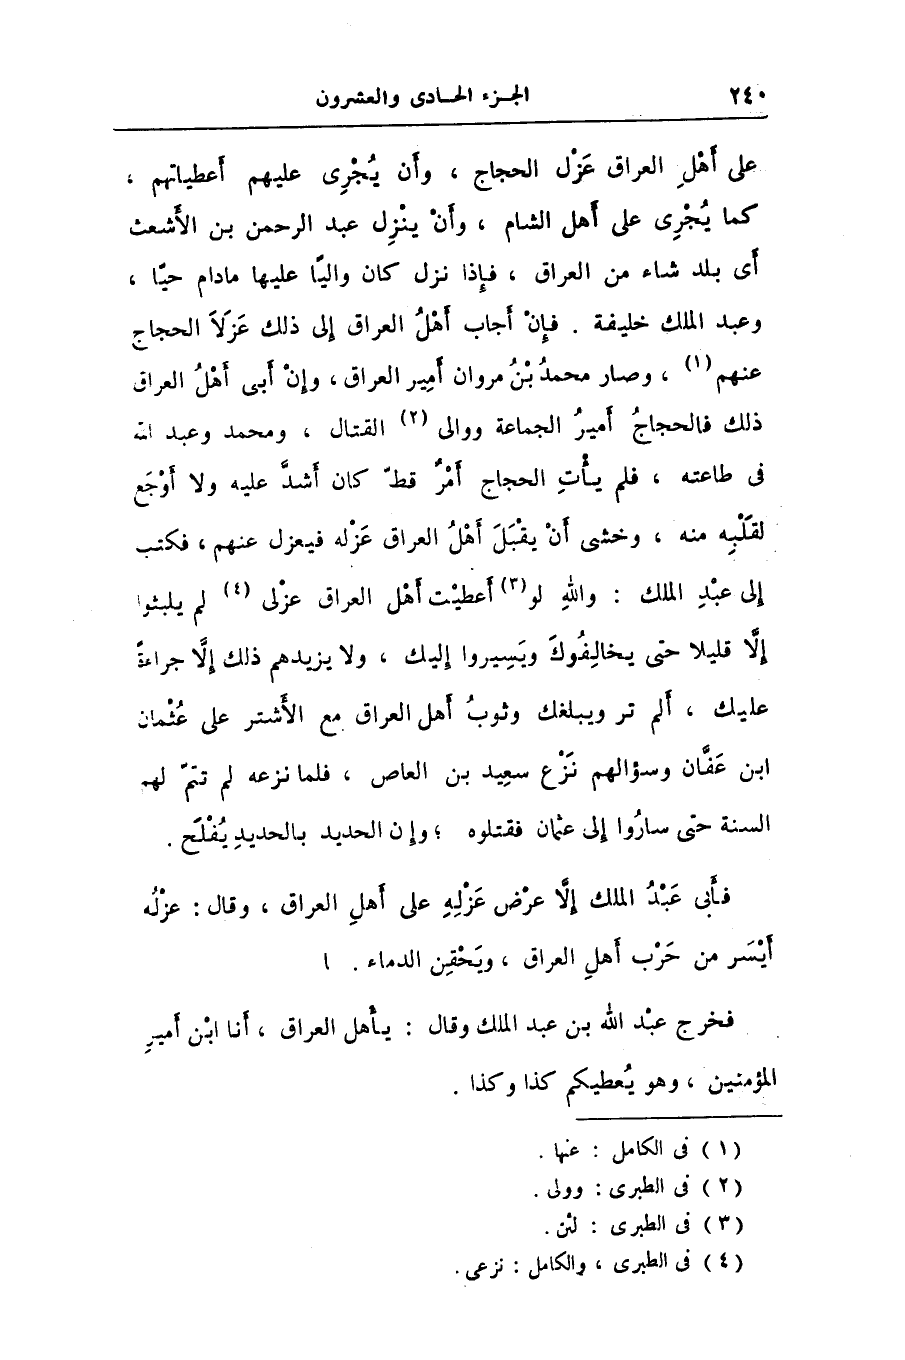 ٢٤٠ الجزء الحادى والعشرون
على أَهْلِ العراق عَزْل الحجاج ، وأَن يُجْرِى عليهم أَعطياتهم ،
كما يُجْرِى على أَهل الشام ، وأَنْ ينْزِل عبد الرحمن بن الأَشعث
أَى بلد شاء من العراق ، فإِذا نزل كان واليًا عليها مادام حيًّا ،
وعبد الملك خليفة . فإِنْ أَجاب أَهْلُ العراق إِلى ذلك عَزَلَا الحجاج
عنهم (١) ، وصار محمدُ بْنُ مروان أَمِير العراق ، وإِنْ أَبى أَهْلُ العراق
ذلك فالحجاجُ أَميرُ الجماعة ووالى (٢) القتال ، ومحمد وعبد الله
فى طاعته ، فلم يأْتِ الحجاج أَمْرٌ قطّ كان أَشدَّ عليه ولا أَوْجَع
لقَلْبِه منه ، وخشى أَنْ يقْبَلَ أَهْلُ العراق عَزْله فيعزل عنهم ، فكتب
إلى عبْدِ الملك : واللهِ لو (٣) أَعطيْت أَهْل العراق عزْلى (٤) لم يلبثوا
إِلَّا قليلا حتى يخالِفُوكَ ويَسِيروا إليك ، ولا يزيدهم ذلك إِلَّا جراءةً
عليك ، أَلم تر ويبلغك وثوبُ أَهل العراق مع الأَشتر على عُثْمان
ابن عَفَّان وسؤالهم نَزْع سعِيد بن العاص ، فلما نزعه لم تتمّ لهم
السنة حتى سارُوا إلى عثمان فقتلوه ؛ وإن الحديد بالحديدِ يُفْلَح .
فأَبى عَبْدُ الملك إِلَّا عرْض عَزْلِهِ على أَهلِ العراق ، وقال : عزْلُه
أَيْسَر من حَرْب أَهلِ العراق ، ويَحْقِن الدماء .
فخرج عبْد الله بن عبد الملك وقال : يأَهل العراق ، أَنا ابْن أَميرِ
المؤمنين ، وهو يُعطيكم كذا وكذا .
(١) فى الكامل : عنها .
(٢) فى الطبرى : وولى .
(٣) فى الطبرى : لئن .
(٤) فى الطبرى ، والكامل : نزعى .